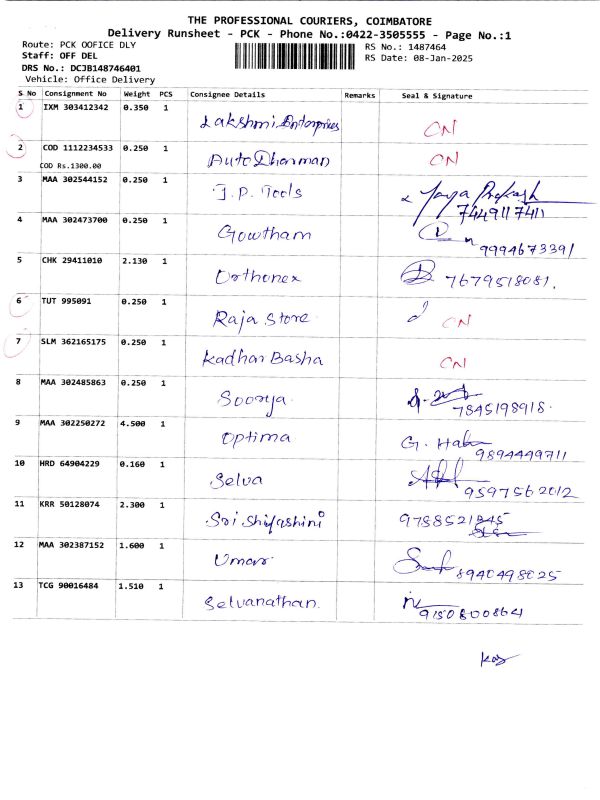 THE PROFESSIONAL COURIERS, COIMBATORE
Delivery Runsheet - PCK - Phone No.:0422-3505555 - Page No.:1
Route: PCK OOFICE DLY RS No.: 1487464
Staff: OFF DEL RS Date: 08-Jan-2025
DRS No.: DCJB148746401
Vehicle: Office Delivery
S No Consignment No Weight PCS Consignee Details Remarks Seal & Signature
1 IXM 303412342 0.350 1 Lakshmi Enterprises CN
2 COD 1112234533 0.250 1 Auto Dharman CN
COD Rs.1300.00
3 MAA 302544152 0.250 1 J.P. Tools Jaya Prakash
7449117411
4 MAA 302473700 0.250 1 Gowtham 9994673391
5 CHK 29411010 2.130 1 Orthonex 7679518081.
6 TUT 995091 0.250 1 Raja Store CN
7 SLM 362165175 0.250 1 Kadhar Basha CN
8 MAA 302485863 0.250 1 Soorya 7845198918.
9 MAA 302250272 4.500 1 Optima G. Hab
9894449711
10 HRD 64904229 0.160 1 Selva 9597562012
11 KRR 50128074 2.300 1 Sri Shifashini 9788521845
12 MAA 302387152 1.600 1 Umar 8940498025
13 TCG 90016484 1.510 1 Selvanathan. 9150800864